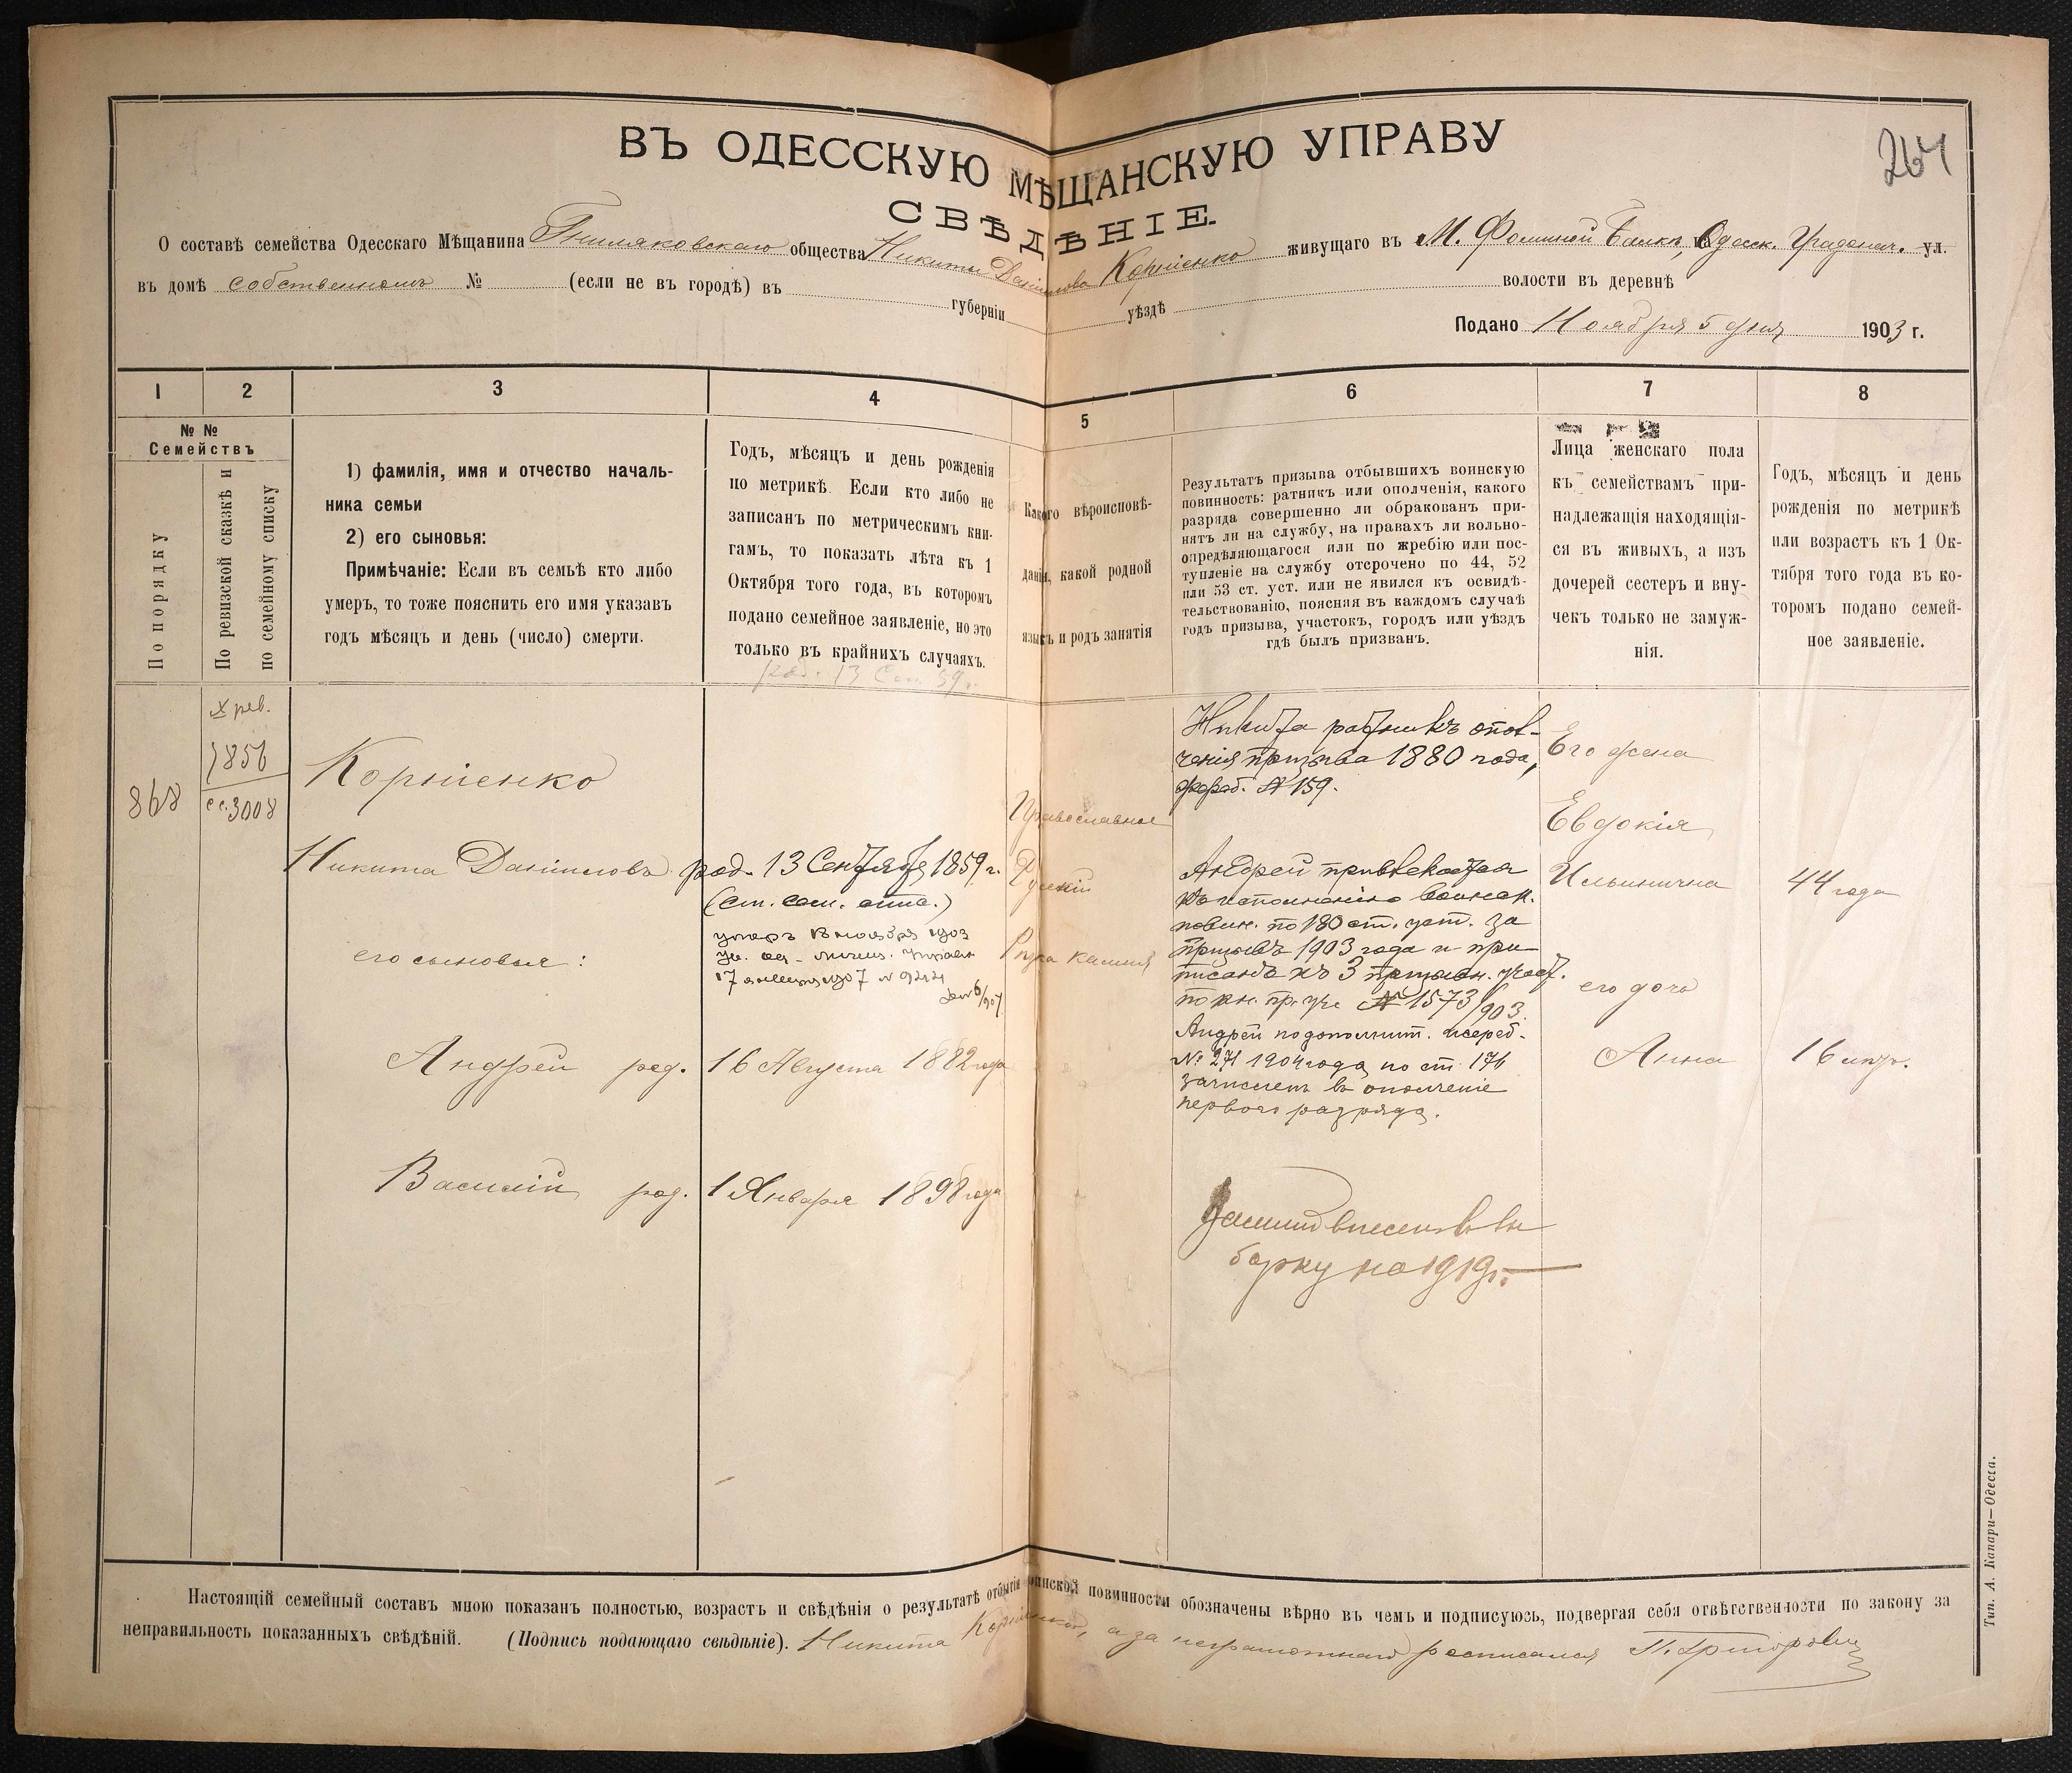 264
ВЪ ОДЕССКУЮ МѢЩАНСКУЮ УПРАВУ
СВѢДѢНІЕ.
О составѣ семейства Одесскаго Мѣщанина Гниляковскаго общества Никиты Данилова Корніенко живущаго въ М. Фоминой Балкѣ, Одесск. Градонач. ул.
въ домѣ собственномъ № (если не въ городѣ) въ губерніи уѣздѣ волости въ деревнѣ
Подано Ноября 5 дня 1903 г.
1 2 3 4 5 6 7 8
№ №
Семействъ
По порядку
По ревизской сказкѣ и
по семейному списку
1) фамилія, имя и отчество началь-
ника семьи
2) его сыновья:
Примѣчаніе: Если въ семьѣ кто либо
умеръ, то тоже пояснить его имя указавъ
годъ мѣсяцъ и день (число) смерти.
Годъ, мѣсяцъ и день рожденія
по метрикѣ. Если кто либо не
записанъ по метрическимъ кни-
гамъ, то показать лѣта къ 1
Октября того года, въ которомъ
подано семейное заявленіе, но это
только въ крайнихъ случаяхъ.
Какого вѣроисповѣ-
данія, какой родной
языкъ и родъ занятія
Результатъ призыва отбывшихъ воинскую
повинность: ратникъ или ополченія, какого
разряда совершенно ли обракованъ при-
нятъ ли на службу, на правахъ ли вольно-
опредѣляющагося или по жребію или пос-
тупленіе на службу отсрочено по 44, 52
или 53 ст. уст. или не явился къ освидѣ-
тельствованію, поясняя въ каждомъ случаѣ
годъ призыва, участокъ, городъ или уѣздъ
гдѣ былъ призванъ.
Лица женскаго пола
къ семействамъ при-
надлежащія находящія-
ся въ живыхъ, а изъ
дочерей сестеръ и вну-
чекъ только не замуж-
нія.
Годъ, мѣсяцъ и день
рожденія по метрикѣ
или возрастъ къ 1 Ок-
тября того года въ ко-
торомъ подано семей-
ное заявленіе.
род. 13 Сен. 59 г.
868
X рев.
1856
сс. 3008
Корніенко
Никита Даниловъ род. 13 Сентября 1859 г.
умеръ ноября 1903
17 1907 № 9244
его сыновья:
Андрей род. 16 Августа 1882 года
Василій род. 1 Января 1898 года
Православное
Русскій
Рѣзка камня
Никита ратникъ опол-
ченія призыва 1880 года,
жереб. № 159.
Андрей привлекается
къ исполненію воинск.
повин. по 180 ст. уст. за
призывъ 1903 года и при-
писанъ къ 3 призывн. участ.
по кн. № 1573/903.
Андрей по дополнит. жереб.
№ 271 1904 года по ст. 176
зачисленъ въ ополченіе
перваго разряда.
Василій внесенъ въ вы
борку на 1919 г.
Его жена
Евдокія
Ильинична 44 года
его дочь
Анна 16 лѣтъ.
Настоящій семейный составъ мною показанъ полностью, возрастъ и свѣдѣнія о результатѣ отбытія воинской повинности обозначены вѣрно въ чемъ и подписуюсь, подвергая себя отвѣтственности по закону за
неправильность показанныхъ свѣдѣній. (Подпись подающаго свѣдѣніе). Никита Корніенко, а за неграмотнаго росписался П. Григоровъ
Тип. А. Капари—Одесса.